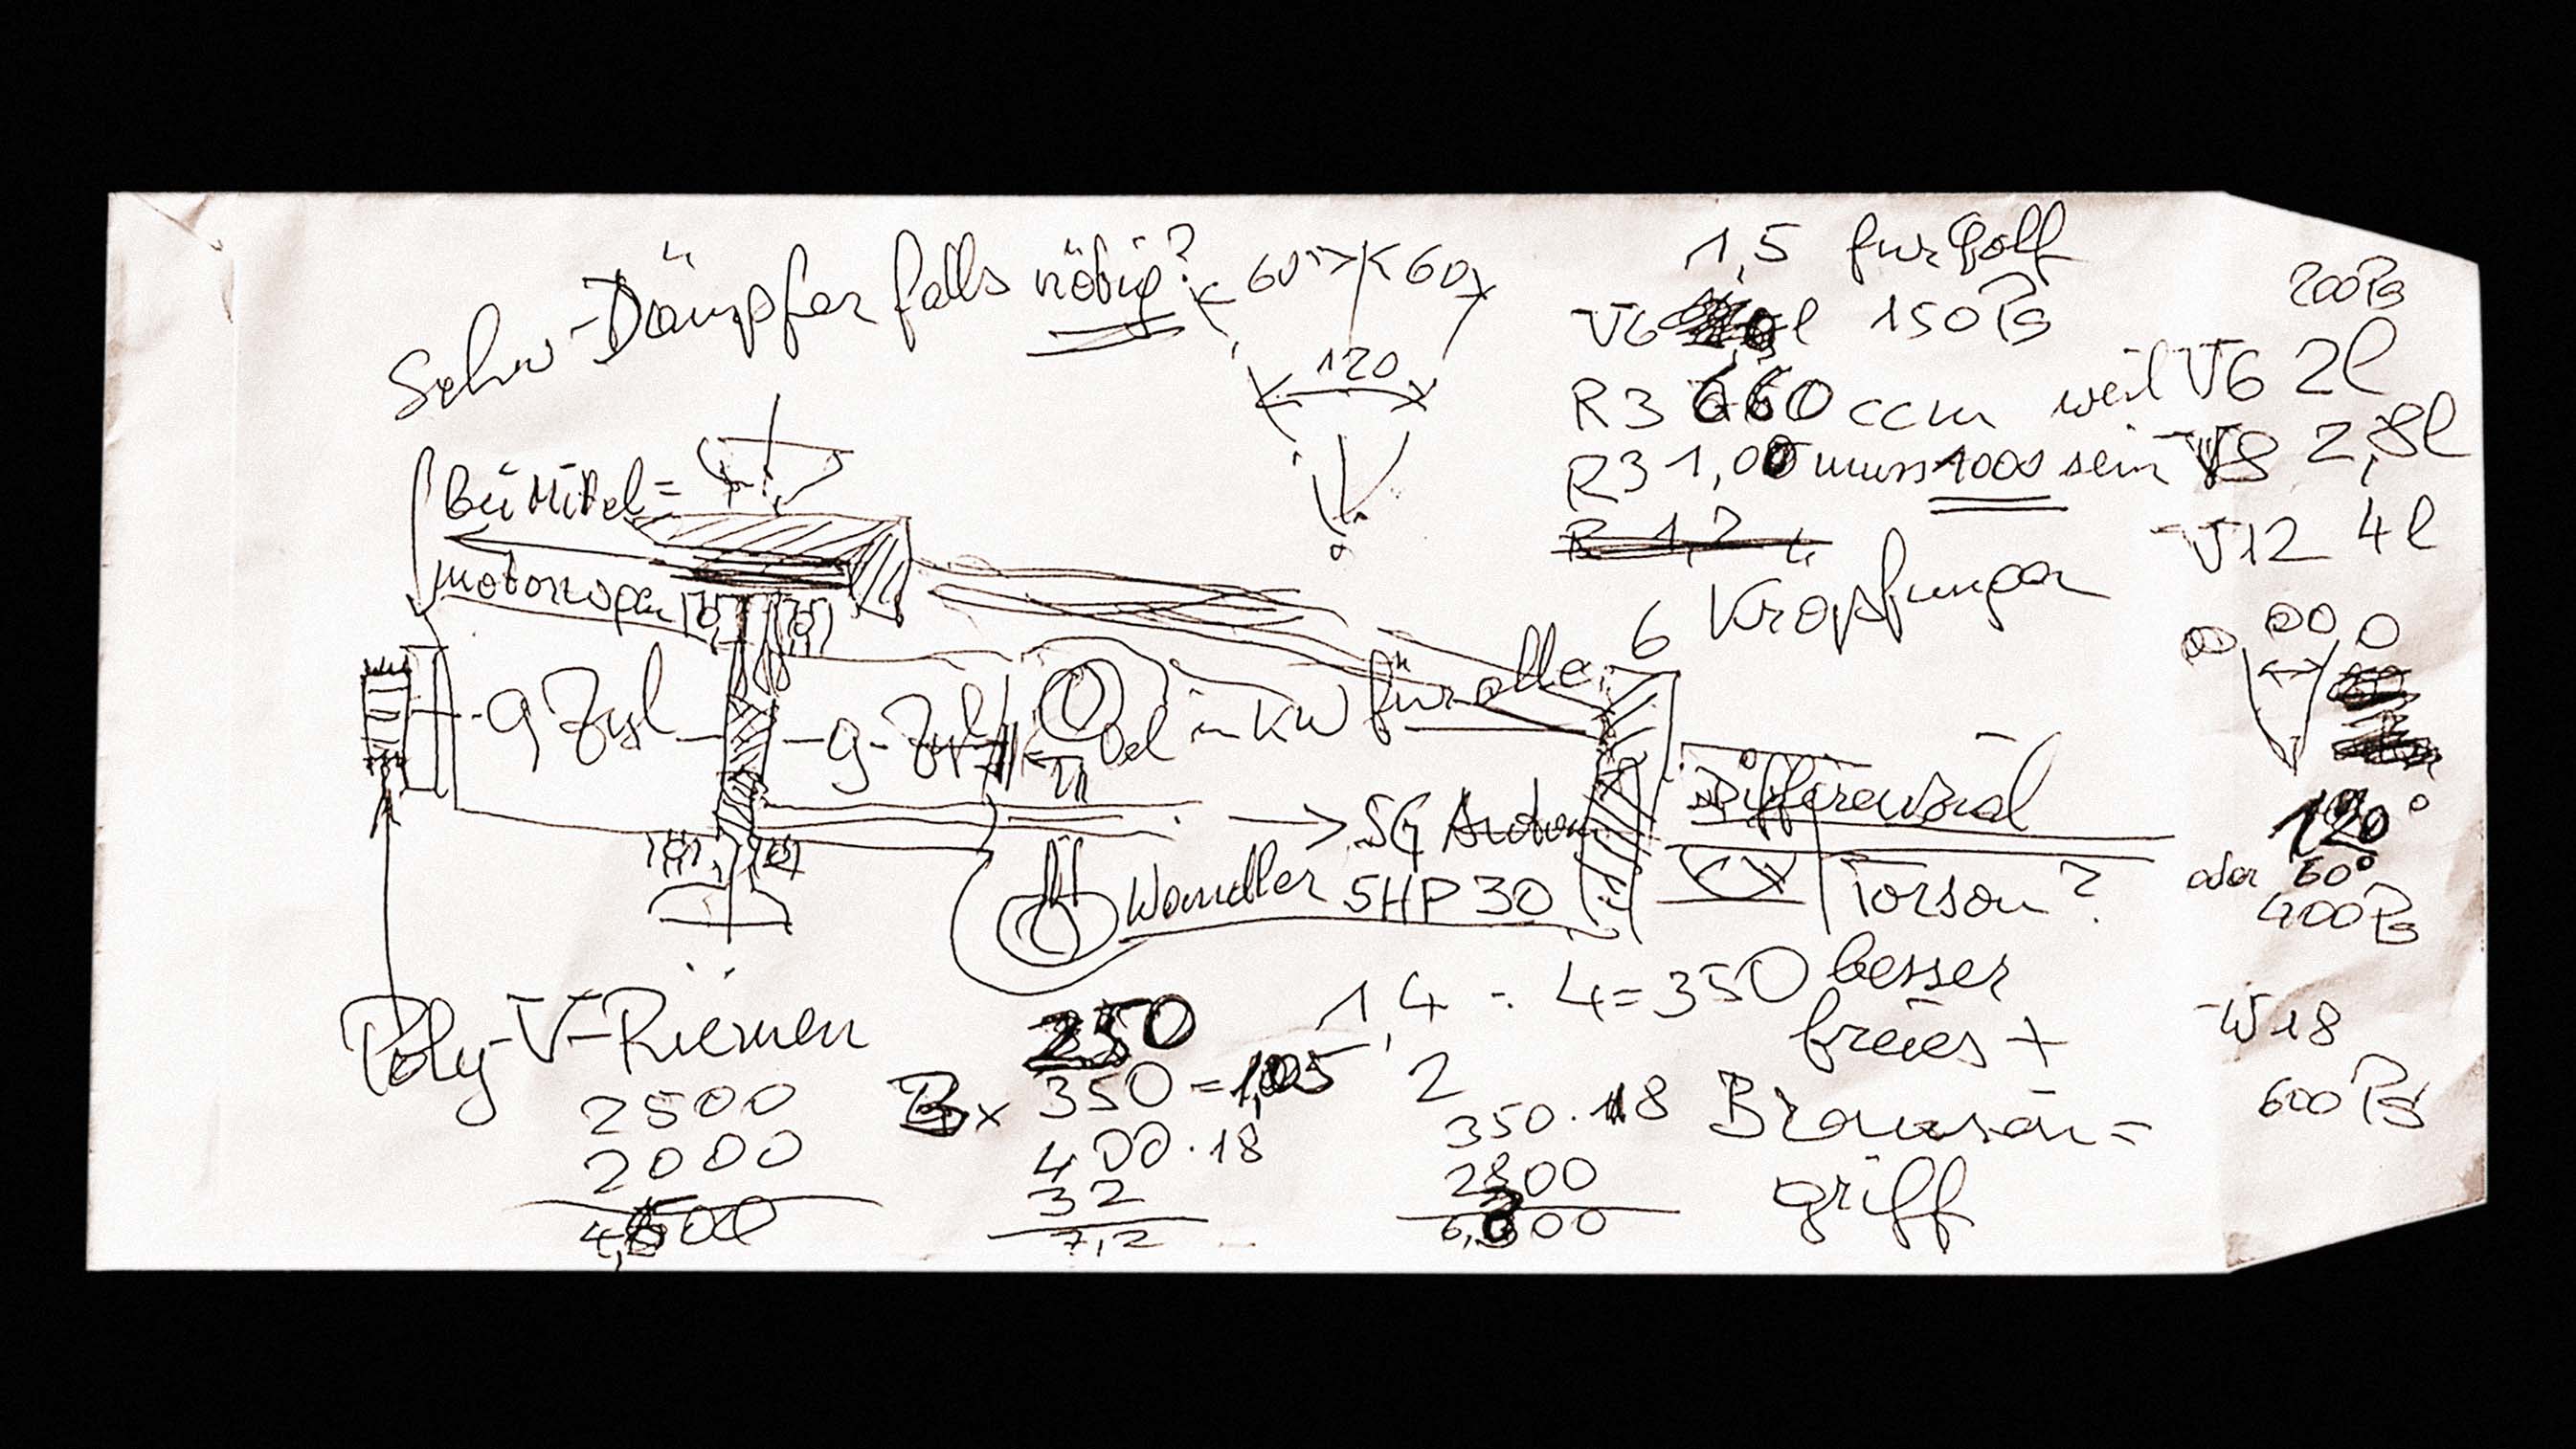 Schw-Dämpfer falls nötig?
60° 60
120
1,5 für Golf
V6 l 150 PS
R3 660 ccm weil
R3 1,00 muss 1000 sein
R 1,2 L
6 Kröpfungen
200 PS
V6 2l
V8 2,8l
V12 4l
120°
oder 60°
400 PS
W18
600 PS
bei Mittel=
motorwagen
9 Zyl
9-Zyl
Oel in KW für alle
→ 5G Autom
Wandler 5HP30
Differenzial
Torson?
Poly-V-Riemen
2500
2000
4,500
250
3x 350 = 1,05
400·18
32
7,2
1,4 : 4=350
2
350·18
2800
6,300
besser
freies +
Bremsan=
griff